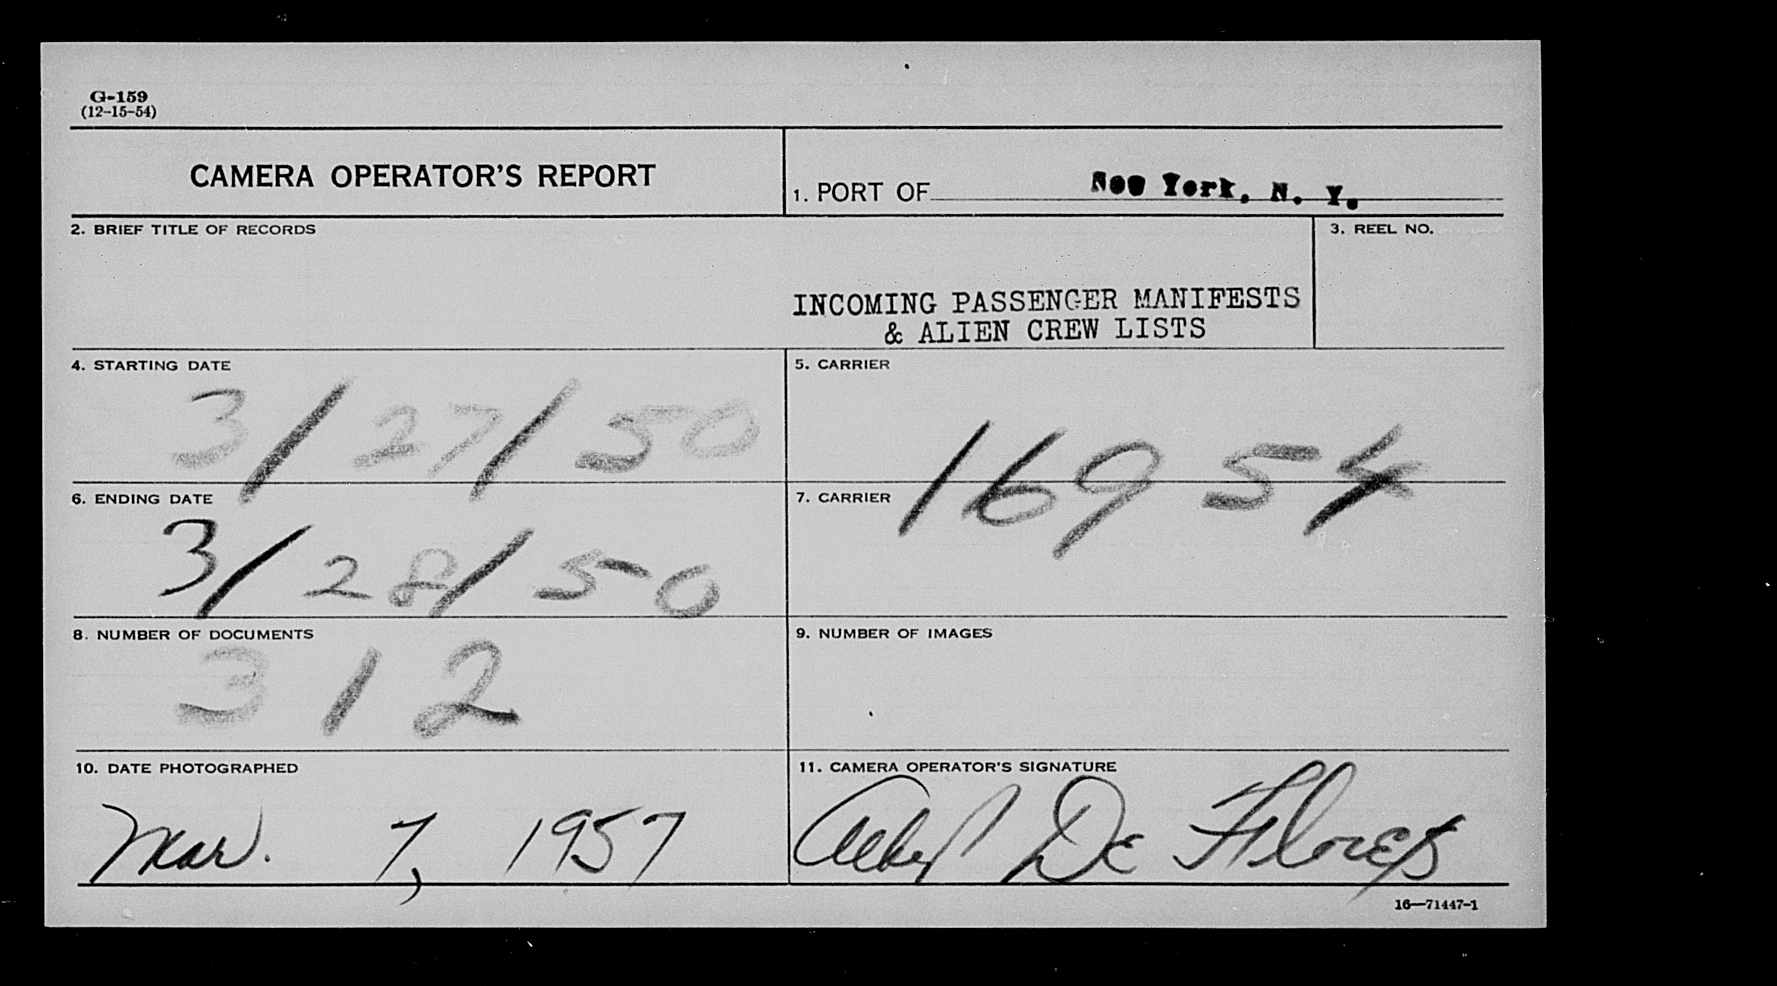 G-159
(12-15-54)
CAMERA OPERATOR'S REPORT
1. PORT OF New York, N. Y.
2. BRIEF TITLE OF RECORDS
INCOMING PASSENGER MANIFESTS
& ALIEN CREW LISTS
3. REEL NO.
4. STARTING DATE
3/27/50
5. CARRIER
16954
6. ENDING DATE
3/28/50
7. CARRIER
8. NUMBER OF DOCUMENTS
312
9. NUMBER OF IMAGES
10. DATE PHOTOGRAPHED
Mar. 7, 1957
11. CAMERA OPERATOR'S SIGNATURE
De Flores
16—71447-1